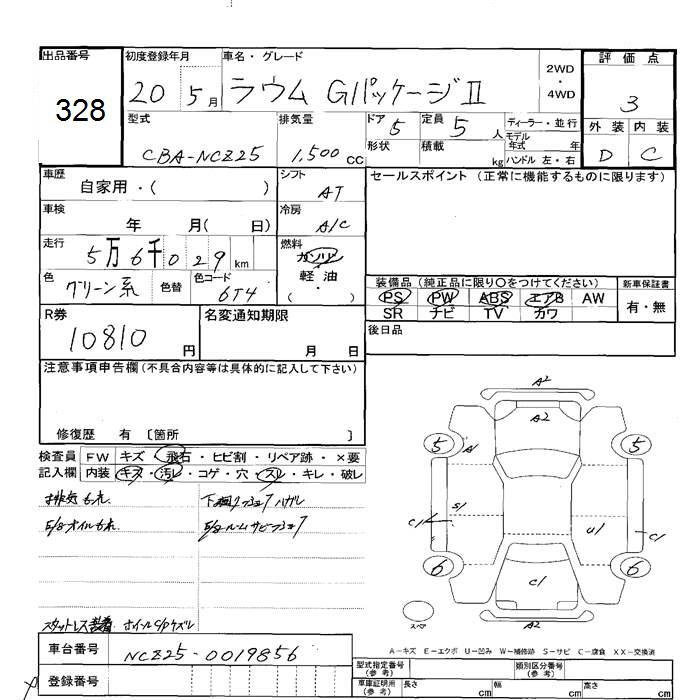 出品番号
328
初度登録年月
20 5月
車名・グレード
ラウム GパッケージⅡ
2WD
・
4WD
評価点
3
型式
CBA-NCZ25
排気量
1,500 cc
ドア 5
形状
定員 5 人
積載 kg
ディーラー・並行
モデル
年式 年
ハンドル 左・右
外装 内装
D C
車歴
自家用・( )
シフト
AT
セールスポイント (正常に機能するものに限ります)
車検
年 月( 日)
冷房
A/C
走行
5万6千029km
燃料
ガソリン
軽油
・
( )
色
グリーン系
色替
色コード
6T4
装備品 (純正品に限り〇をつけてください)
PS PW ABS エアB AW
SR ナビ TV カワ
新車保証書
有・無
R券
10810 円
名変通知期限
月 日
後日品
注意事項申告欄 (不具合内容等は具体的に記入して下さい)
修復歴 有 〔箇所 〕
検査員
記入欄
FW キズ・飛石・ヒビ割・リペア跡・×要
内装 キズ・汚レ・コゲ・穴・スレ・キレ・破レ
排気もれ
E/gオイルもれ
E/gルームサビ
スタットレス装着
A2
A2
5
5
A1
S1
C1
U1
C1
6
6
C1
A2
スペア
A-キズ E-エクボ U-凹み W-補修跡 S-サビ C-腐食 XX-交換済
車台番号
NCZ25-0019856
登録番号
型式指定番号
(参考)
類別区分番号
(参考)
車庫証明用
(参考)
長さ cm
幅 cm
高さ cm